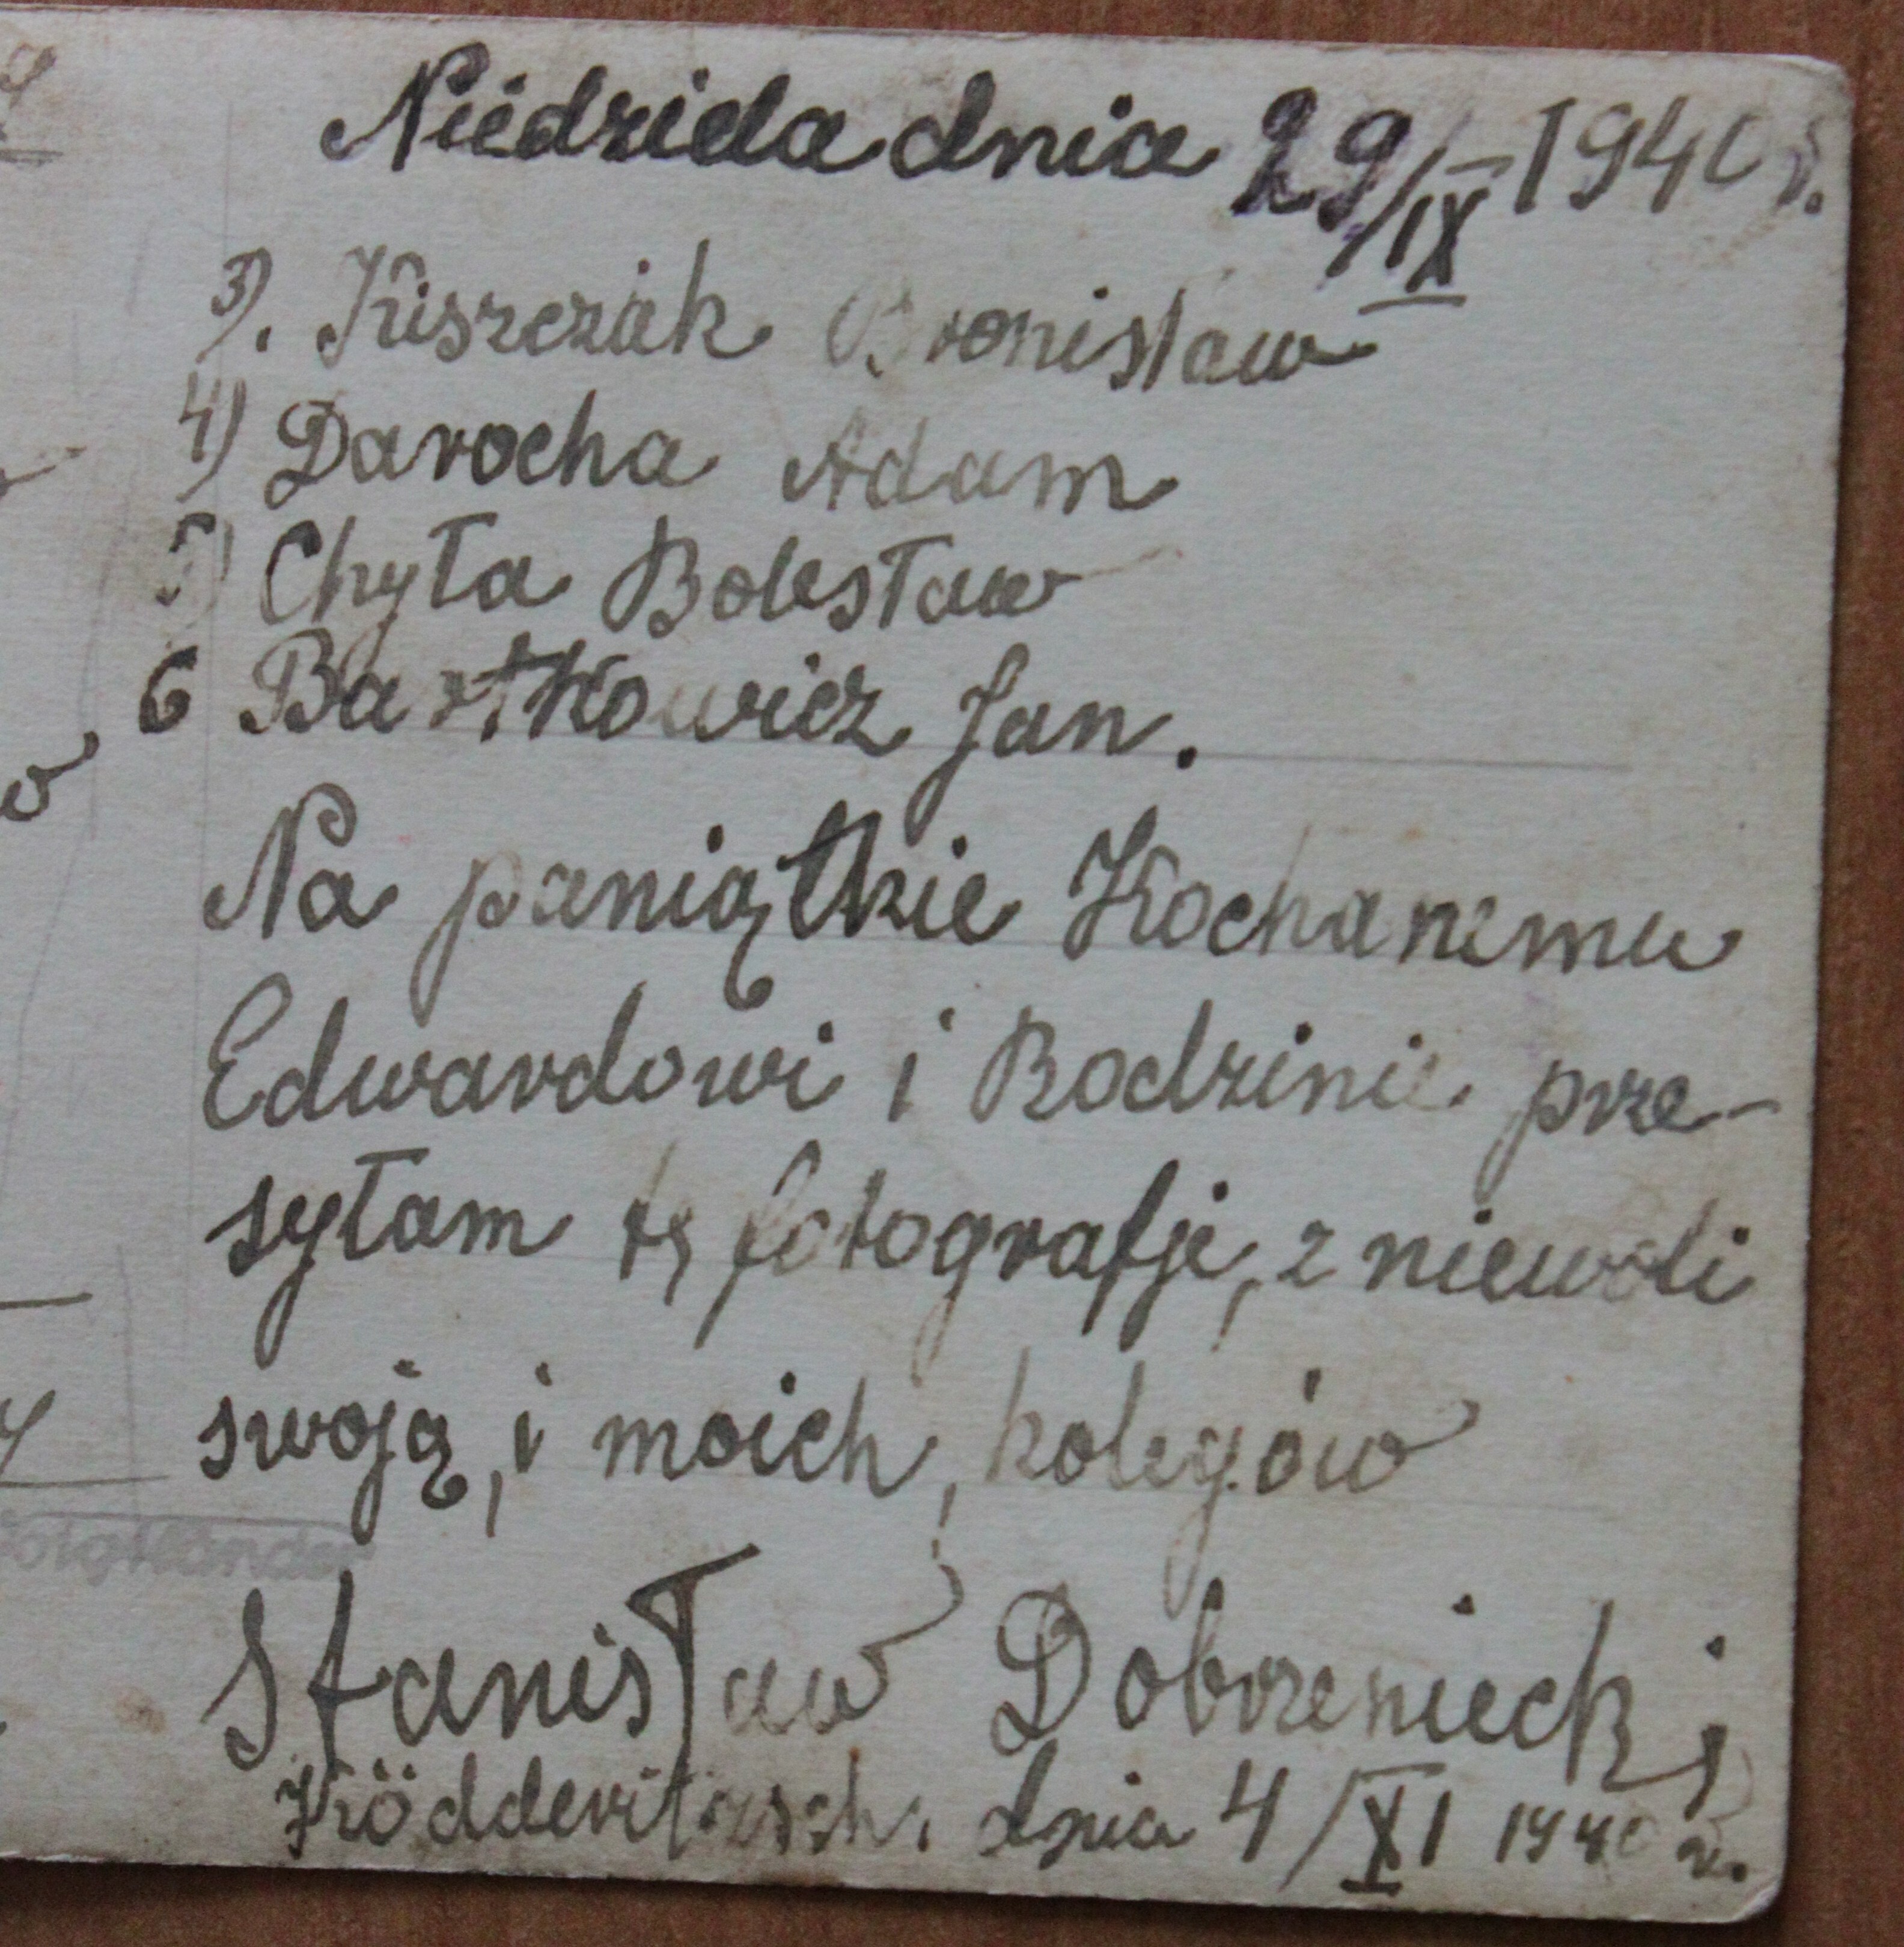 Niedziela dnia 29/IX 1940 r.
3). Kiszczak Bronisław
4) Darocha Adam
5) Chyła Bolesław
6 Bartkowicz Jan.
Na paniątkie Kochanemu
Edwardowi i Rodzinie prze-
syłam tę fotografję, z niewoli
swoją, i moich, kolegów
Stanisław Dobrzeniecki
Ködderitzsch. dnia 4/XI 1940 r.